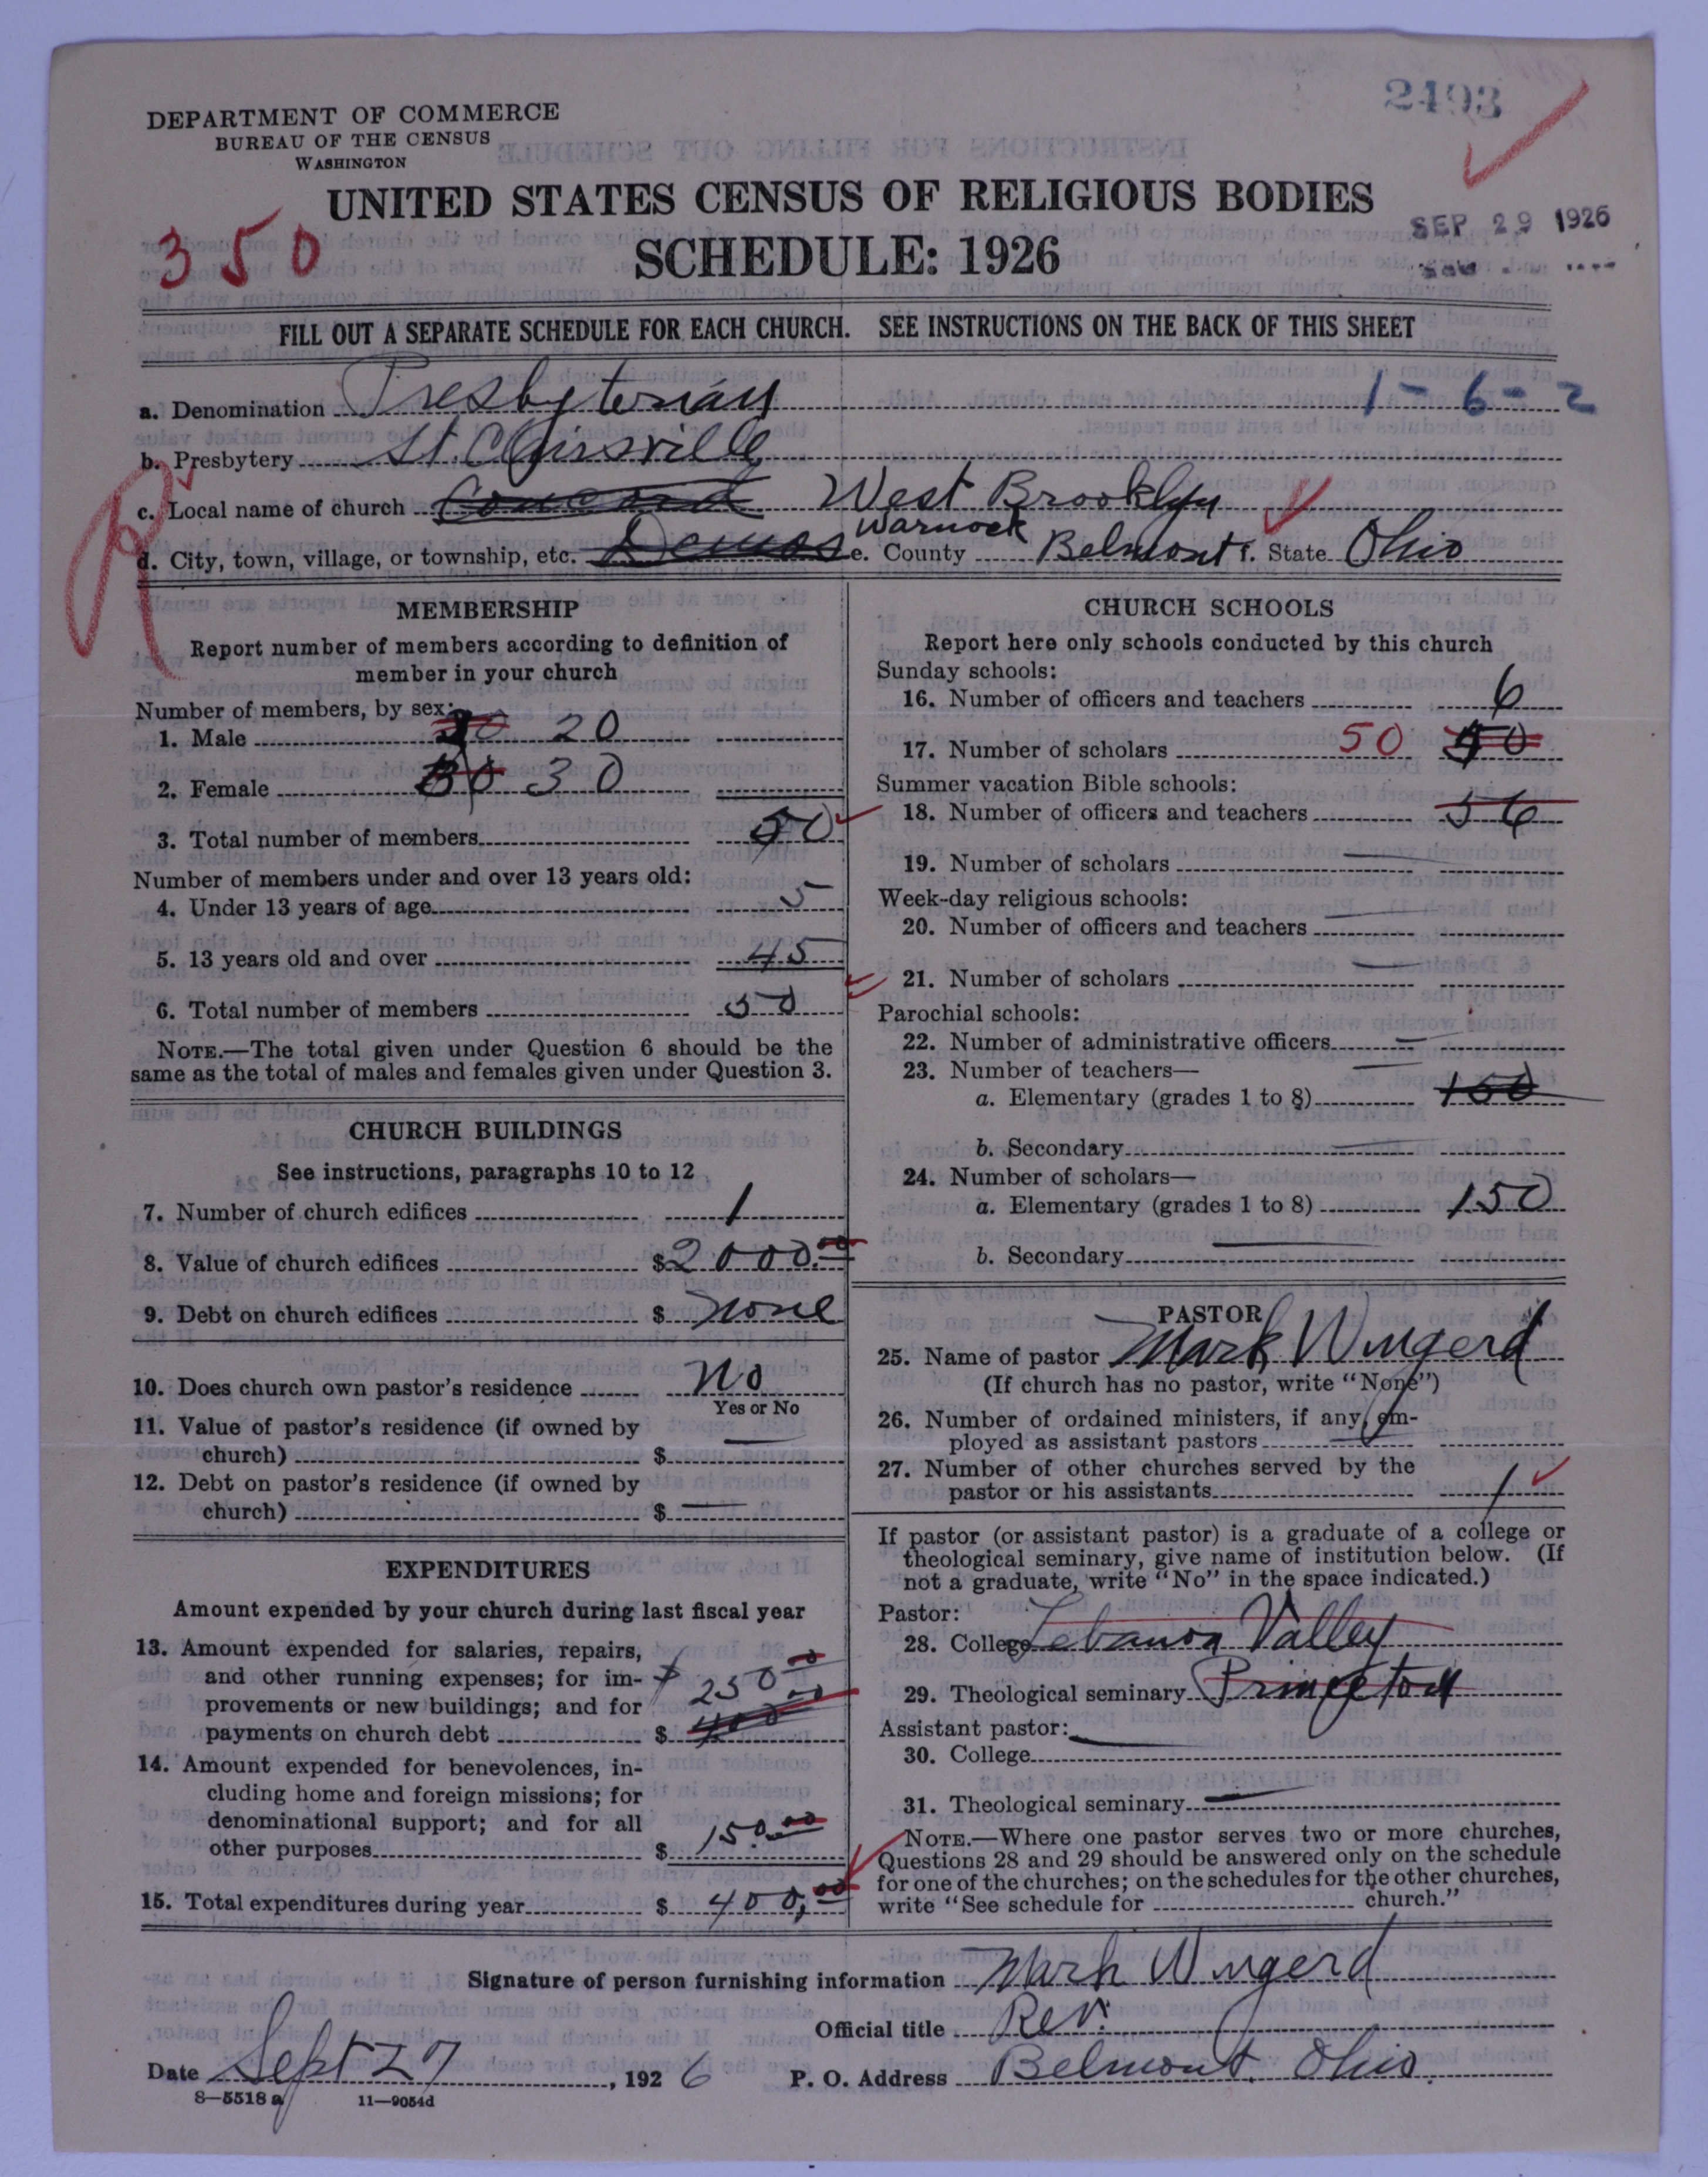 2493
DEPARTMENT OF COMMERCE
BUREAU OF THE CENSUS
WASHINGTON
UNITED STATES CENSUS OF RELIGIOUS BODIES
SCHEDULE: 1926
350
SEP 29 1926
FILL OUT A SEPARATE SCHEDULE FOR EACH CHURCH. SEE INSTRUCTIONS ON THE BACK OF THIS SHEET
a. Denomination Presbyterian 1-6-2
b. Presbytery St. Clairsville
c. Local name of church Concord West Brooklyn
Warnock
d. City, town, village, or township, etc. Demos e. County Belmont f. State Ohio
MEMBERSHIP
Report number of members according to definition of
member in your church
Number of members, by sex:
1. Male 20
2. Female 30
3. Total number of members 50
Number of members under and over 13 years old:
4. Under 13 years of age 5
5. 13 years old and over 45
6. Total number of members 50
NOTE.—The total given under Question 6 should be the
same as the total of males and females given under Question 3.
CHURCH BUILDINGS
See instructions, paragraphs 10 to 12
7. Number of church edifices 1
8. Value of church edifices $2000.00
9. Debt on church edifices $ none
10. Does church own pastor's residence No
Yes or No
11. Value of pastor's residence (if owned by
church) $ —
12. Debt on pastor's residence (if owned by
church) $ —
EXPENDITURES
Amount expended by your church during last fiscal year
13. Amount expended for salaries, repairs,
and other running expenses; for im-
provements or new buildings; and for $250.00
payments on church debt $ 400.00
14. Amount expended for benevolences, in-
cluding home and foreign missions; for
denominational support; and for all
other purposes $ 150.00
15. Total expenditures during year $ 400.00
CHURCH SCHOOLS
Report here only schools conducted by this church
Sunday schools:
16. Number of officers and teachers 6
17. Number of scholars 50
Summer vacation Bible schools:
18. Number of officers and teachers 56
19. Number of scholars —
Week-day religious schools:
20. Number of officers and teachers —
21. Number of scholars —
Parochial schools:
22. Number of administrative officers —
23. Number of teachers— —
a. Elementary (grades 1 to 8) 150
b. Secondary —
24. Number of scholars—
a. Elementary (grades 1 to 8) 150
b. Secondary —
PASTOR
25. Name of pastor Mark Wingerd
(If church has no pastor, write "None")
26. Number of ordained ministers, if any, em-
ployed as assistant pastors —
27. Number of other churches served by the
pastor or his assistants 1
If pastor (or assistant pastor) is a graduate of a college or
theological seminary, give name of institution below. (If
not a graduate, write "No" in the space indicated.)
Pastor:
28. College Lebanon Valley
29. Theological seminary Princeton
Assistant pastor:
30. College —
31. Theological seminary —
NOTE.—Where one pastor serves two or more churches,
Questions 28 and 29 should be answered only on the schedule
for one of the churches; on the schedules for the other churches,
write "See schedule for church."
Signature of person furnishing information Mark Wingerd
Official title Rev.
Date Sept 27, 1926 P. O. Address Belmont, Ohio.
8—5518 a 11—9054d